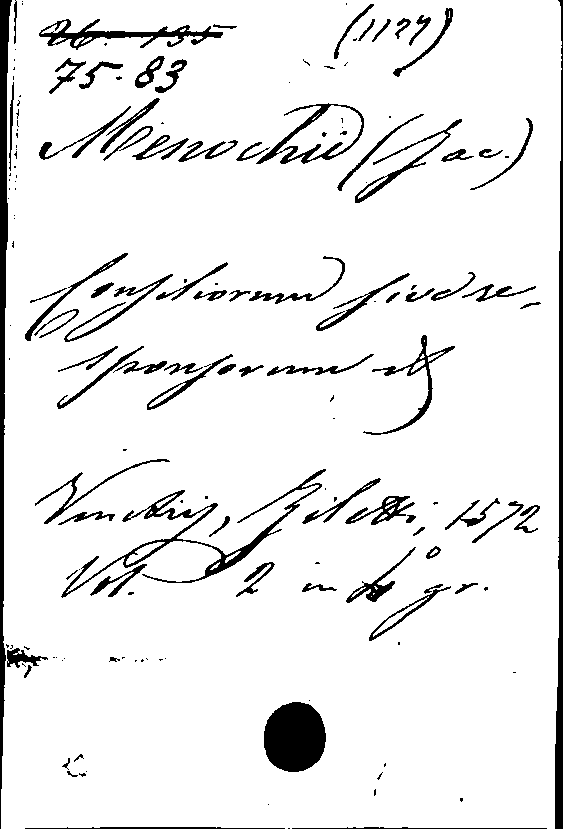 26. 135 (1127)
75-83
Menochii (Jac.)
Consiliorum sive re-
sponsorum etc
Venetiis, Ziletti, 1572
Vol. 2 in fo gr.